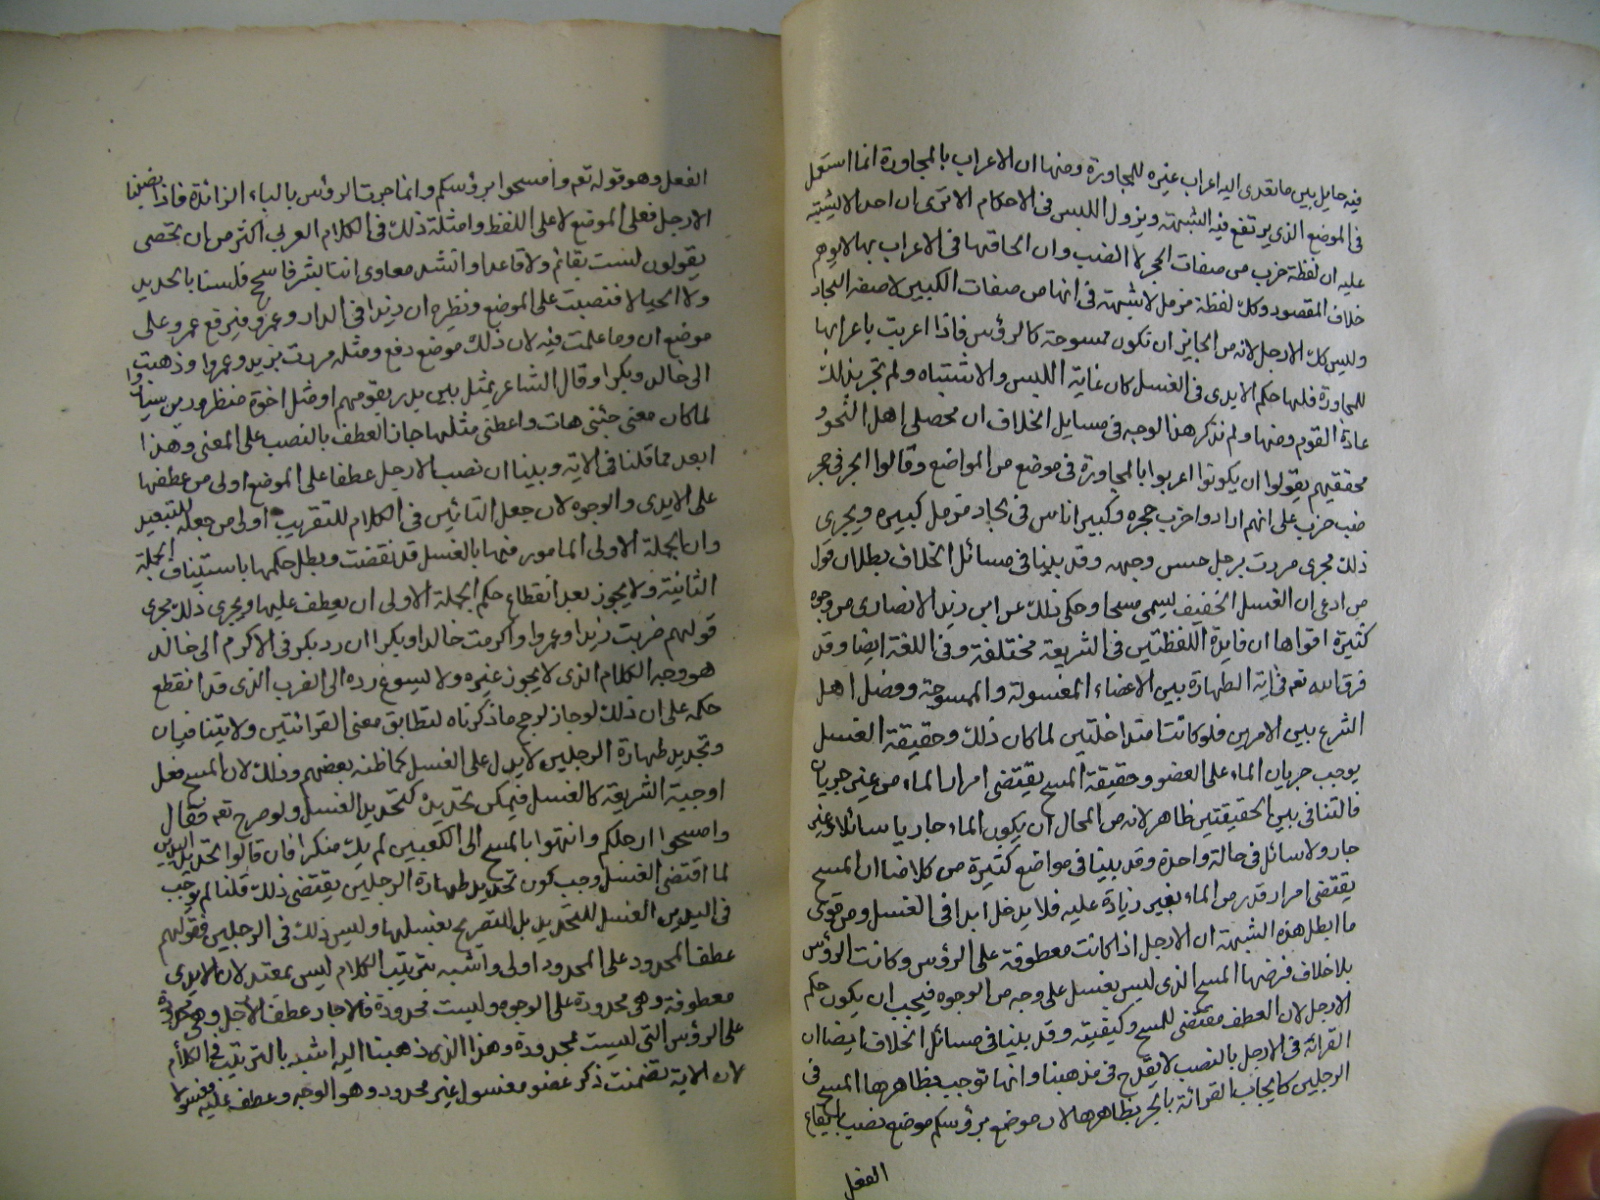 فيه حايل بين ما تعدى اليه اعراب غيره للمجاورة ومنها ان الاعراب بالمجاورة انما استعمل
فى الموضع الذى يرتفع فيه الشبهة ويزول اللبس فى الاحكام الا ترى ان احدا لا يشتبه
عليه ان لفظة خرب من صفات الحجر لا الضب وان الحاقها فى الاعراب بها لا يوهم
خلاف المقصود وكك لفظة مزمل لا شبهة فى انها من صفات الكبير لا صفة البجاد
وليس كك الارجل لانه من الجايز ان تكون ممسوحة كالرؤس فاذا اعربت باعرابها
للمجاورة فلها حكم الايدى فى الغسل كان غاية اللبس والاشتباه ولم تجر بذلك
عادة القوم ومنها ولم نذكر هذا الوجه فى مسايل الخلاف ان محصلى اهل النحو و
محققيهم يقولوا ان يكونوا اعربوا بالمجاورة فى موضع من المواضع وقالوا الجر فى حجر
ضب خرب على انهم ارادوا خرب حجره وكبير اناس فى بجاد مزمل كبيره ويجرى
ذلك مجرى مررت برجل حسن وجهه وقد بينا فى مسائل الخلاف بطلان قول
من ادعى ان الغسل الخفيف يسمى مسحا وحكى ذلك عن ابى زيد الانصارى من وجوه
كثيرة اقواها ان فايدة اللفظتين فى الشريعة مختلفة وفى اللغة ايضا وقد
فرق الله تعم فى اية الطهارة بين الاعضاء المغسولة والممسوحة وفصل اهل
الشرع بين الامرين فلو كانتا متداخلتين لما كان ذلك وحقيقة الغسل
يوجب جريان الماء على العضو وحقيقة المسح يقتضى امرار الماء من غير جريان
فالتنافى بين الحقيقتين ظاهر لانه من المحال ان يكون الماء جاريا سائلا وغير
جار ولا سائل فى حالة واحدة وقد بينا فى مواضع كثيرة من كلامنا ان المسح
يقتضى امرار قدر من الماء بغير زيادة عليه فلا يدخل ابدا فى الغسل ومن قوى
ما ابطل هذه الشبهة ان الارجل اذا كانت معطوفة على الرؤس وكانت الرؤس
بلا خلاف فرضها المسح الذى ليس بغسل على وجه من الوجوه فيجب ان يكون حكم
الارجل لان العطف مقتضى للمسح وكيفيته وقد بينا فى مسائل الخلاف ايضا ان
القرائة فى الارجل بالنصب لا يقدح فى مذهبنا وانها توجب بظاهرها المسح فى
الرجلين كايجاب القرائة بالجر بظاهرها لان موضع برؤسكم موضع نصب بايقاع
الفعل
الفعل وهو قوله تعم وامسحوا برؤسكم وانما جرت الرؤس بالباء الزائدة فاذا نصبنا
الارجل فعلى الموضع لا على اللفظ وامثلة ذلك فى الكلام العربى اكثر من ان تحصى
يقولون لست بقائم ولا قاعدا وانشد معاوى اننا بشر فاسجح فلسنا بالجبال
ولا الحديدا فنصبت على الموضع ونظيره ان زيدا فى الدار وعمرو فيرفع عمرو على
موضع ان وما عملت فيه لان ذلك موضع رفع ومثله مررت بزيد وعمروا وذهبت
الى خالد وبكرا وقال الشاعر بمثل بنى بدر لقومهم او مثل اخوة منظور بن سيار
لما كان معنى جئنى هات واعطنى مثلها جاز العطف بالنصب على المعنى وهذا
ابعد مما قلنا فى الاية وبينا ان نصب الارجل عطفا على الموضع اولى من عطفها
على الايدى والوجوه لان جعل التاثير فى الكلام للتقريب اولى من جعله للتبعيد
وان الجملة الاولى المامور فيها بالغسل قد نقضت وبطل حكمها باستيناف الجملة
الثانية ولا يجوز بعد انقطاع حكم الجملة الاولى ان يعطف عليها ويجرى ذلك مجرى
قولهم ضربت زيدا وعمروا واكرمت خالدا وبكرا ان رد بكر فى الاكرام الى خالد
هو وجه الكلام الذى لا يجوز غيره ولا يسوغ رده الى الضرب الذى قد انقطع
حكمه على ان ذلك لو جاز لوجح ما ذكرناه لتطابق معنى القرائتين ولا يتنافيان
وتحديد طهارة الرجلين لا يدل على الغسل كما ظنه بعضهم وذلك لان المسح فعل
اوجبته الشريعة كالغسل فيمكن تحديده كتحديد الغسل ولو صرح تعم فقال
وامسحوا ارجلكم وانتهوا بالمسح الى الكعبين لم يك منكرا فان قالوا تحديد اليدين
لما اقتضى الغسل وجب كون تحديد طهارة الرجلين يقتضى ذلك قلنا لم يوجب
فى اليدين الغسل للتحديد بل للتصريح بغسلها وليس ذلك فى الرجلين فقولهم
عطف المحدود على المحدود اولى واشبه بترتيب الكلام ليس بمعتمد لان الايدى
معطوفة وهى محدودة على الوجوه وليست محدودة فالا جاز عطف الارجل وهى محدودة
على الرؤس التى ليست بمحدودة وهذا الذى ذهبنا اليه اشبه بالترتيب فى الكلام
لان الاية تضمنت ذكر عضو مغسول غير محدود وهو الوجه وعطف عليه مغسولا